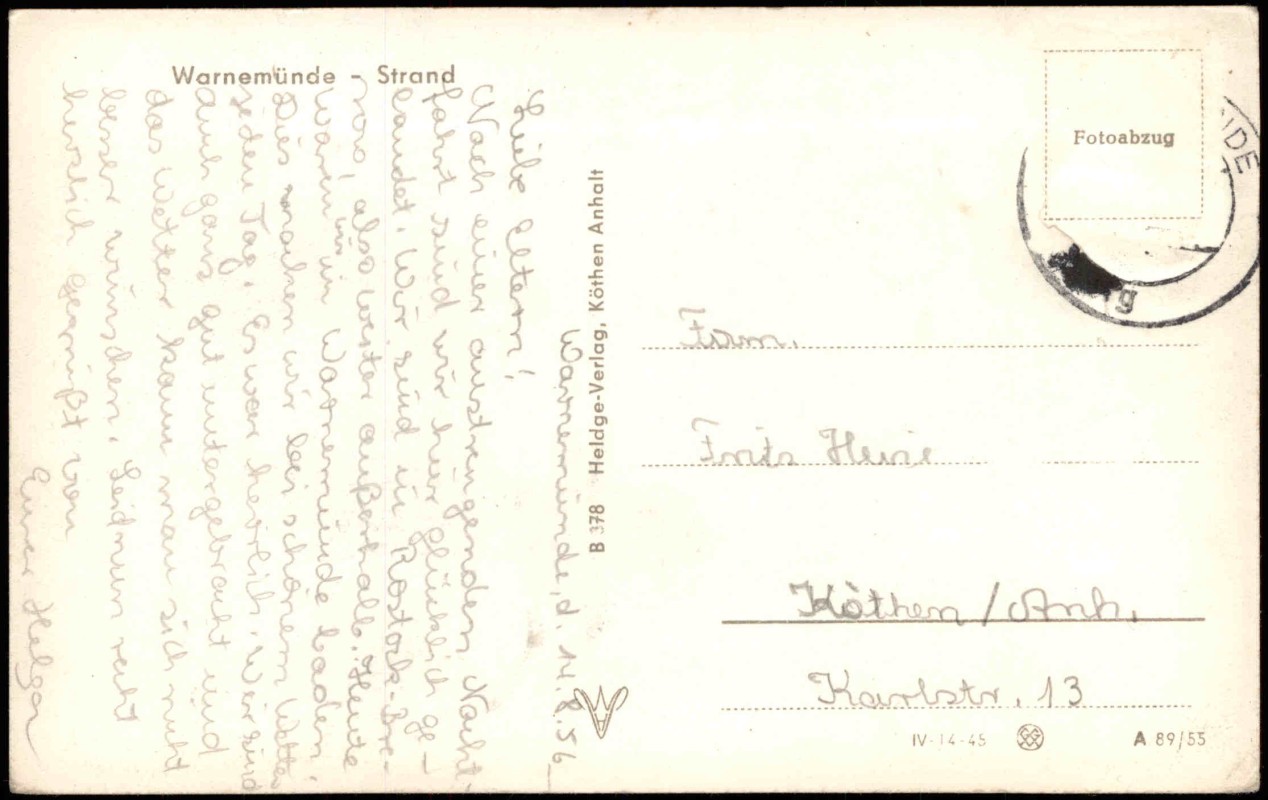 Warnemünde - Strand
Warnemünde, d. 14.8.56
Liebe Eltern!
Nach einer anstrengenden Nacht-
fahrt sind wir hier glücklich ge-
landet. Wir sind in Rostock-Bre-
also weiter außerhalb. Heute
waren wir in Warnemünde baden.
Dies machen wir bei schönem Wetter
jeden Tag. Es war herrlich. Wir sind
auch ganz gut untergebracht und
das Wetter kann man sich nicht
besser wünschen. Seid nun recht
herzlich gegrüßt von
Eurer Helga
B 378 Heldge-Verlag, Köthen Anhalt
Fotoabzug
NDE
g
Fam.
Fritz
Köthen / Anh.
Karlstr. 13
IV-14-45
A 89/55